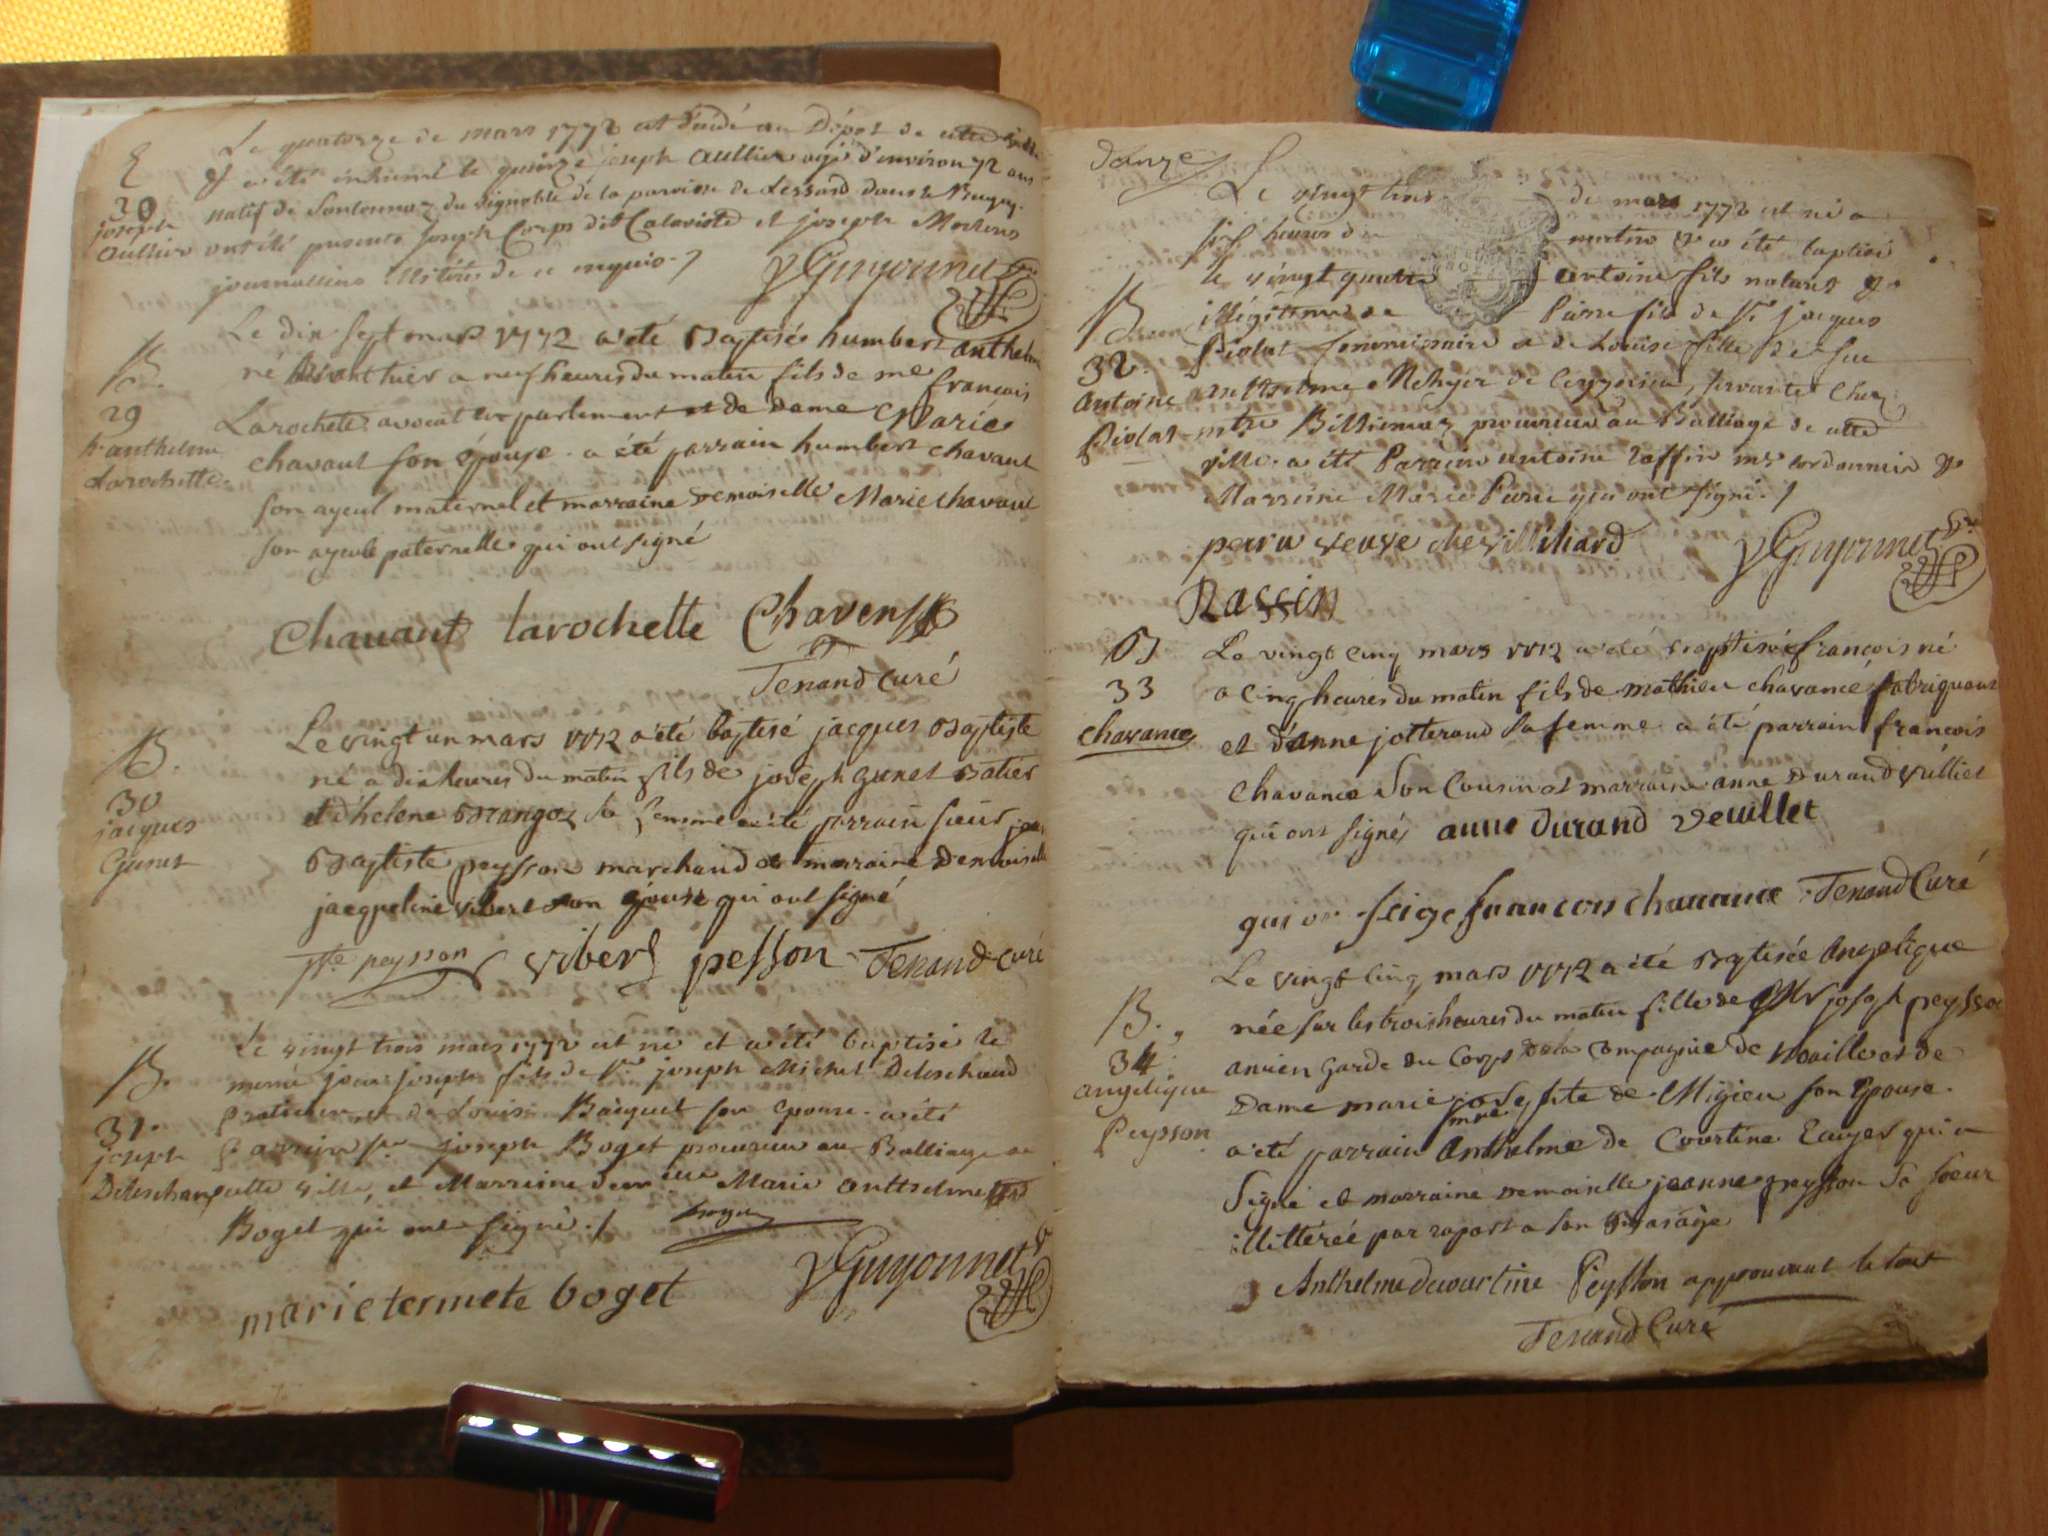 Le quatorze de mars 1772 est décédé au Dépot de cette ville
& a été inhumé le quinze joseph aultier agé d'environ 72 ans
natif de du vignoble de la paroisse de Lessard dans le Bugey.
ont été presents joseph Corps dit et joseph
journaliers illiterés de ce requis ./
Guyonnet
20
joseph
aultier
Le dix sept mars 1772 a été Baptisé humbert anthelme
né avant hier a neuf heures du matin fils de me françois
Larochette avocat en parlement et de Dame Marie
chavant son épouse. a été parrain humbert chavant
son ayeul maternel et marraine Demoiselle Marie chavant
son ayeule paternelle qui ont signé
B.
29
h. anthelme
Larochette.
Chavant larochette
Tenand Curé
Le vingt un mars 1772 a été baptisé jacques Baptiste
né a dix heures du matin fils de joseph gunet Batier
et d'helene sa femme a été parrain sieur jean
Baptiste peysson marchand et marraine Demoiselle
jacqueline vibert son épouse qui ont signé
B.
30
jacques
Gunet
Bte peysson vibert pesson Tenand curé
Le vingt trois mars 1772 est né et a été baptisé le
meme jour joseph fils de Sr. joseph Michel Deleschaud
praticien et de Louise Bacquet son epouse. a été
Parrain Sr. joseph Boget procureur au Balliage de
cette ville, et Marraine demelle Marie anthelmette
Boget qui ont signé ./ boget
B.
31.
joseph
Deleschaud
Guyonnet
marie termete boget
douze
Le vingt trois de mars 1772 est né a
six heures du matin & a été baptisé
le vingt quatre antoine fils naturel &
illégitime de Pierre fils de Sr. jacques
Piolat commissaire et de Louise fille de feu
anthelme de Ceyzerieu, servante chez
mtre Billiemaz procureur au Balliage de cette
ville. a été Parrain antoine raffin me cordonnier &
Marraine Marie Perre qui ont signé ./
B
32.
Antoine
Piolat
perra veuve chevillliard Guyonnet
Raffin
Le vingt cinq mars 1772 a été baptisé françois né
a cinq heures du matin fils de mathieu chavance fabriquant
et d'anne jotterand sa femme a été parrain françois
chavance son Cousin et marraine anne Durand veuillet
qui ont signés anne durand veuillet
B
33
chavance
qui on seige francois chavance Tenand Curé
Le vingt cinq mars 1772 a été Baptisée Angelique
née sur les trois heures du matin fille de Mr joseph peysson
ancien garde du Corps de la Compagnie de Noailles et de
Dame marie josephte de Migieu son Epouse.
a été parrain mre Anthelme de Courtine Ecuyer qui a
signé et marraine Demoiselle jeanne peysson sa soeur
illitterée par raport a son bas age
B.
34
angelique
Peysson
Anthelme decourtine Peysson approuvant le tout
Tenand Curé